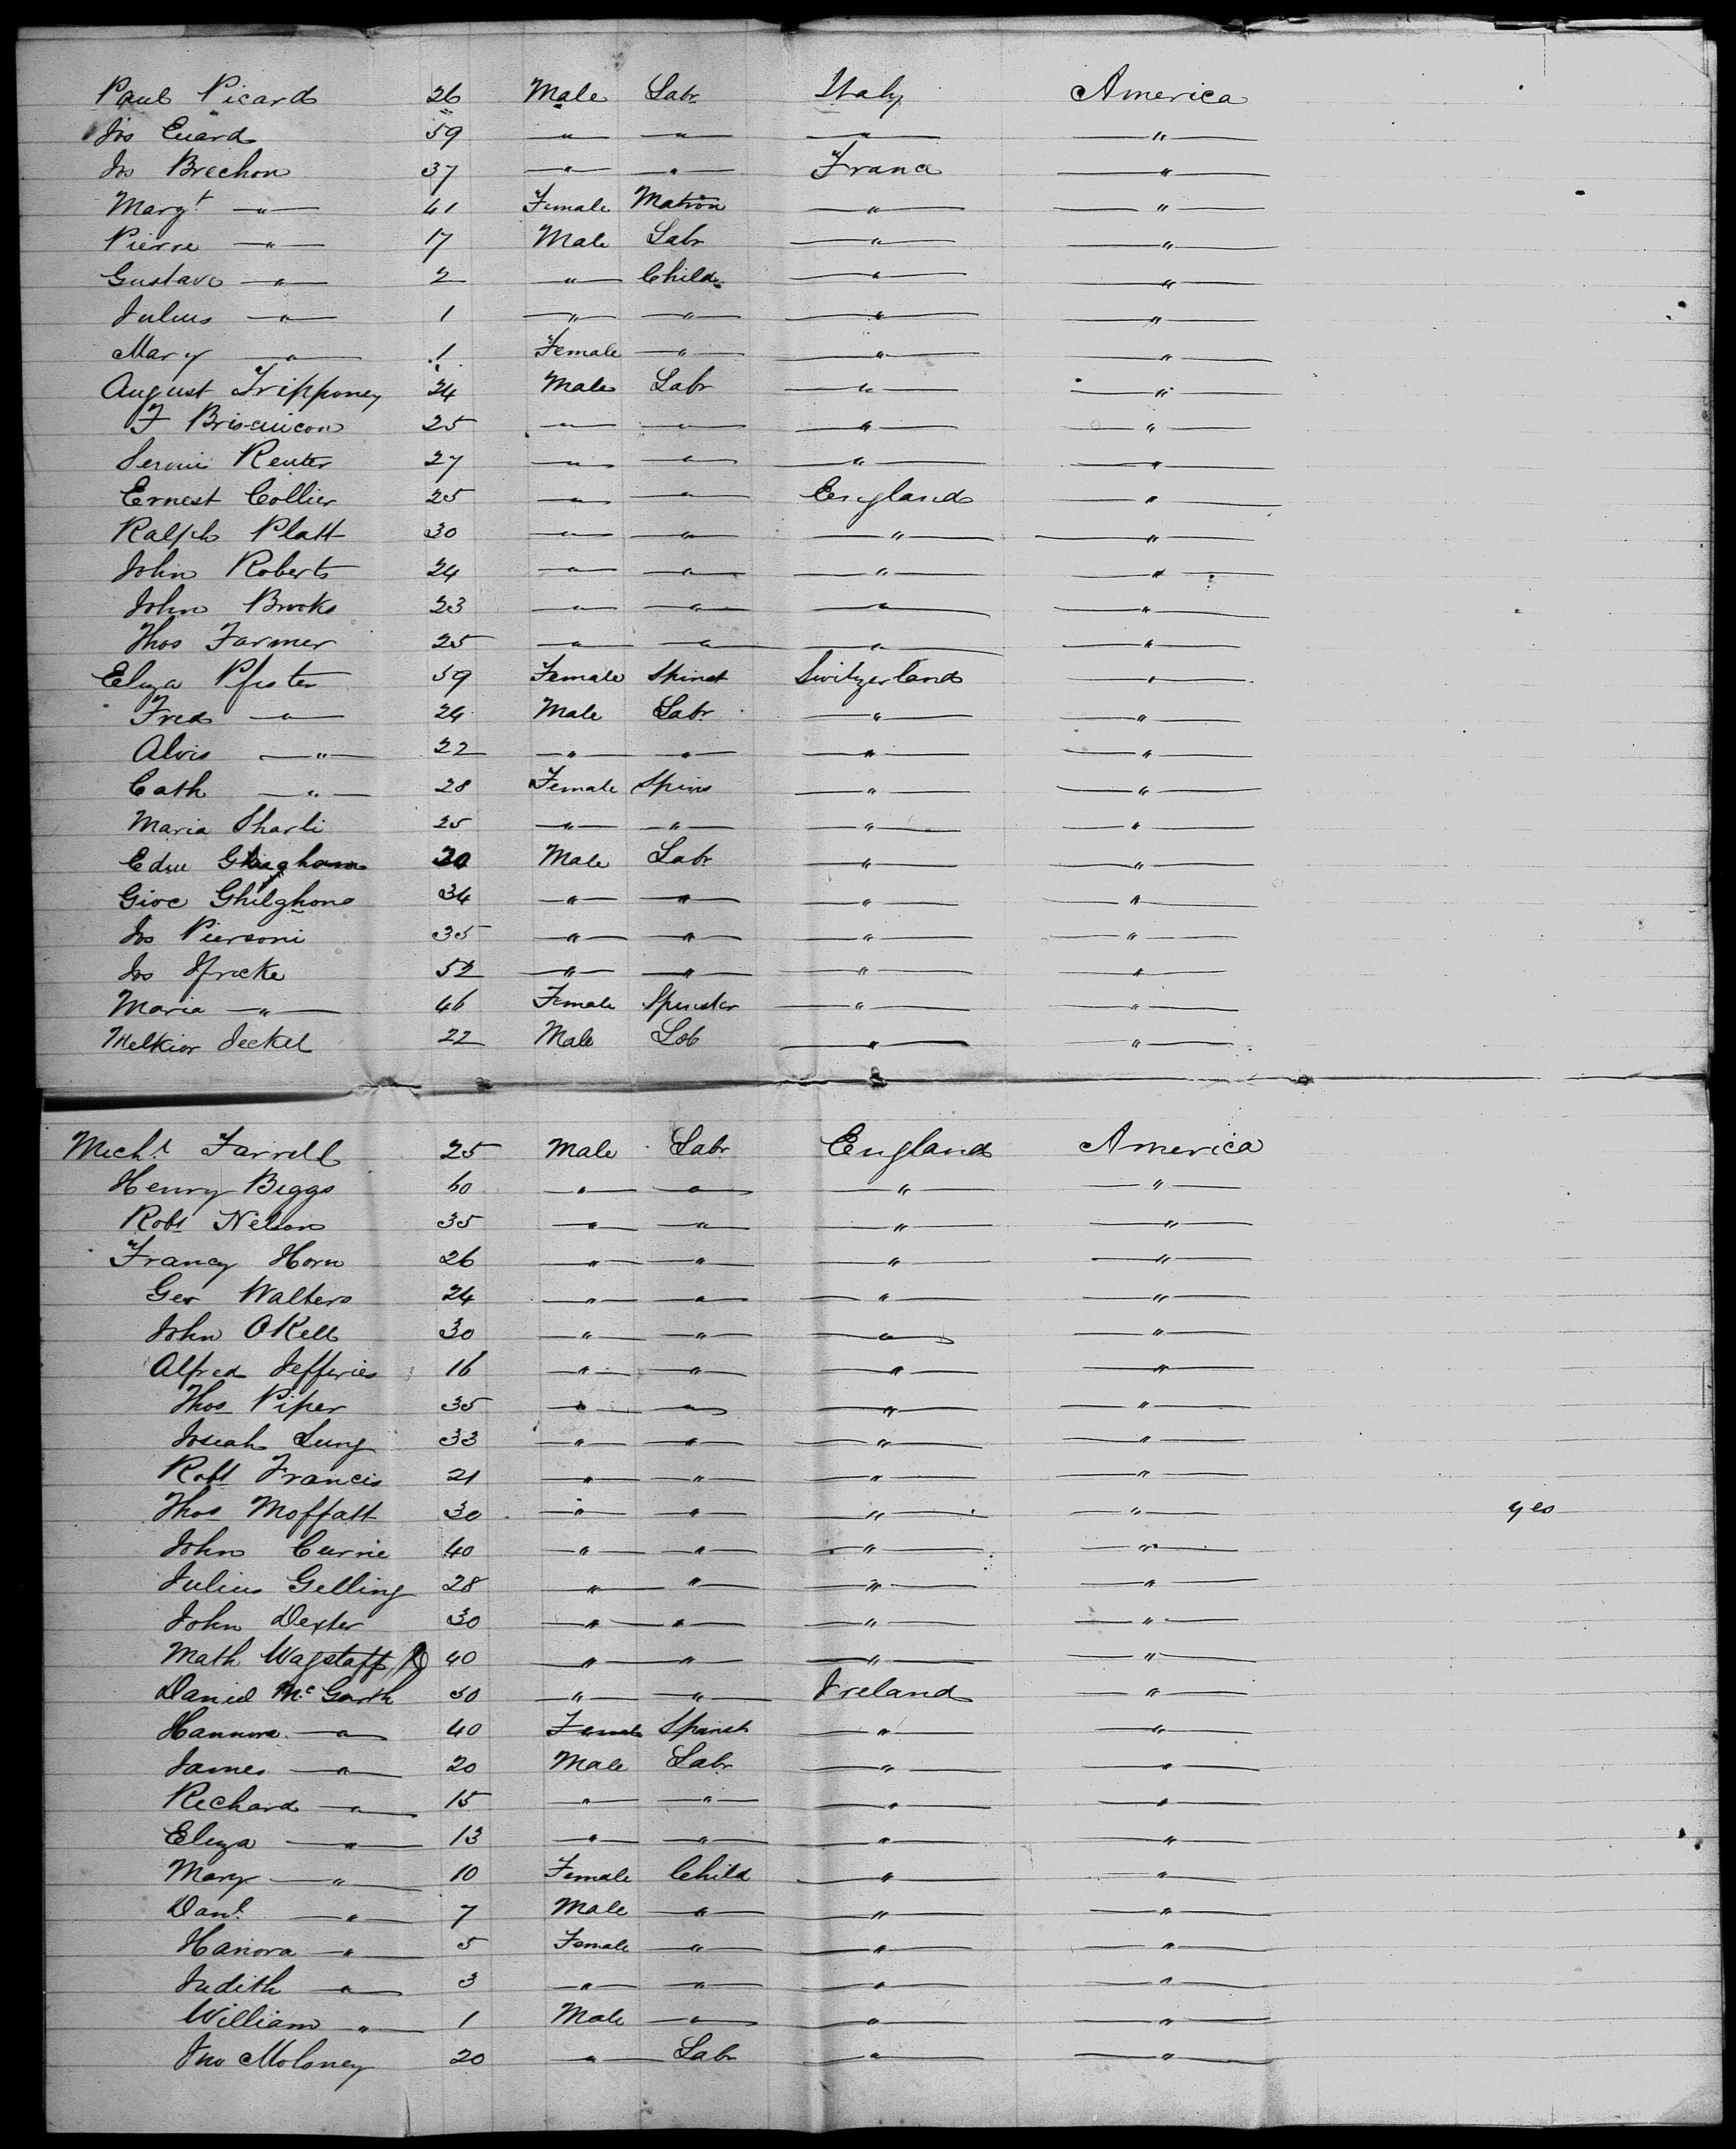 Paul Picard 26 Male Labr Italy America
Jos Euard 59 " " " "
Jos Brechon 37 " " France "
Margt " 41 Female Matron " "
Pierre " 17 Male Labr " "
Gustave " 2 " Child " "
Julius " 1 " " " "
Mary " 1 Female " " "
August Tripponey 24 Male Labr " "
F 25 " " " "
Reuter 27 " " " "
Ernest Collier 25 " " England "
Ralph Platt 30 " " " "
John Roberts 24 " " " "
John Brooks 23 " " " "
Thos Farmer 25 " " " "
Eliza Pfister 59 Female Spinst Switzerland "
Fred " 24 Male Labr " "
Alois " 22 " " " "
Cath " 28 Female Spins " "
Maria Sharli 25 " " " "
Edw 30 Male Labr " "
Gioc Ghilghono 34 " " " "
Jos Piersoni 35 " " " "
Jos 52 " " " "
Maria " 46 Female Spinster " "
Melkior Jeckel 22 Male Lab " "
Michl Farrell 25 Male Labr England America
Henry Biggs 60 " " " "
Robt Nelson 35 " " " "
Francy Horn 26 " " " "
Geo Walters 24 " " " "
John OKell 30 " " " "
Alfred Jefferies 16 " " " "
Thos Piper 35 " " " "
Josiah Lung 33 " " " "
Robt Francis 21 " " " "
Thos Moffatt 30 " " " " yes
John Currie 40 " " " "
Julius Gelling 28 " " " "
John Dexter 30 " " " "
Math Wagstaff 40 " " " "
Daniel McGarth 50 " " Ireland "
Hannora " 40 Female Spinst " "
James " 20 Male Labr " "
Richard " 15 " " " "
Eliza " 13 " " " "
Mary " 10 Female Child " "
Danl " 7 Male " " "
Hanora " 5 Female " " "
Judith " 3 " " " "
William " 1 Male " " "
Jno Moloney 20 " Labr " "